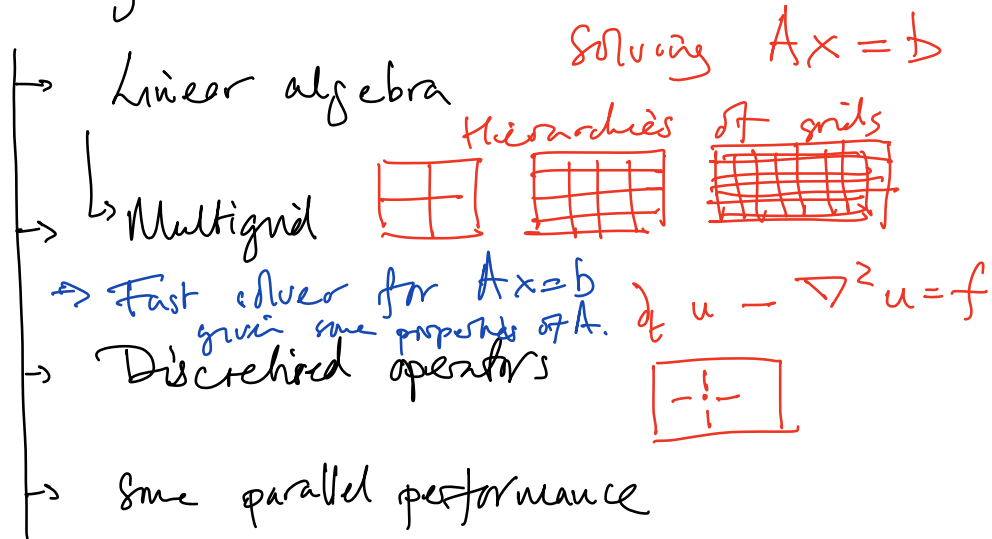 Solving Ax = b
→ Linear algebra
Hierarchies of grids
→ Multigrid
→ Fast solver for Ax=b
given some properties of A.
∂t u − ∇² u = f
→ Discretised operators
→ Some parallel performance